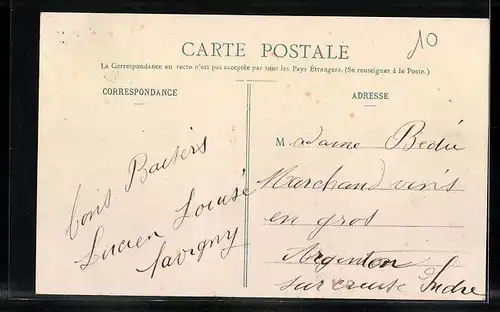 10
CARTE POSTALE
La Correspondance au recto n'est pas acceptée par tous les Pays Étrangers. (Se renseigner à la Poste.)
CORRESPONDANCE
bons Baisers
Lucien Louise
Savigny
ADRESSE
Madame Bédu
Marchand vins
en gros
Argenton
sur creuse Indre